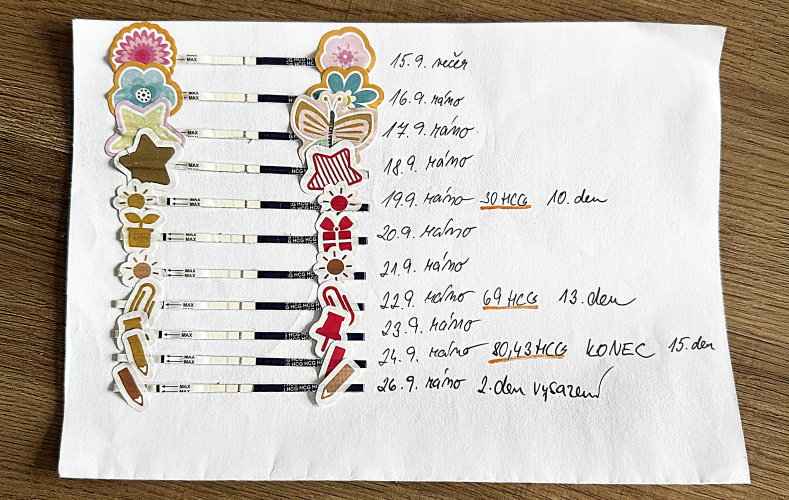 MAX HCG HCG 15.9. večer
MAX HCG HCG 16.9. ráno
MAX 17.9. ráno
MAX HCG 18.9. ráno
MAX HCG HCG 19.9. ráno 30 HCG 10. den
MAX HCG HCG 20.9. ráno
MAX HCG HCG 21.9. ráno
MAX HCG HCG 22.9. ráno 69 HCG 13. den
MAX HCG HCG 23.9. ráno
MAX HCG HCG 24.9. ráno 80,43 HCG KONEC 15. den
MAX HCG HCG 26.9. ráno 2. den vysazení